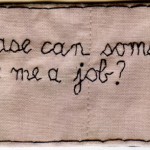 ease can some
e me a job?